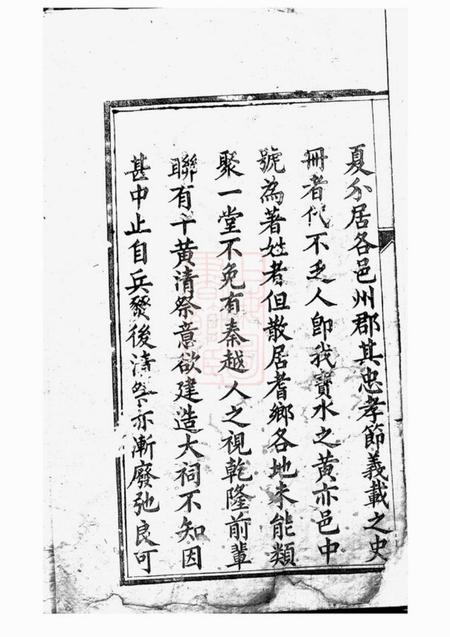 夏分居各邑州郡其忠孝節義載之史
冊者代不乏人卽我寶水之黃亦邑中
號為著姓者但散居耆鄉各地未能類
聚一堂不免有秦越人之視乾隆前輩
聯有十黃清祭意欲建造大祠不知因
甚中止自兵發後清祭亦漸廢弛良可